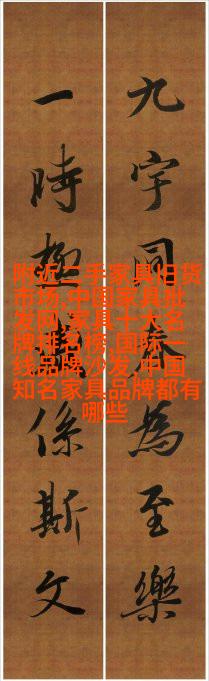 九宇同為至樂
一時係斯文
附近二手家具旧货
市场,中国家具批
发网,家具十大名
牌排名榜,国际一
线品牌沙发,中国
知名家具品牌都有
哪些